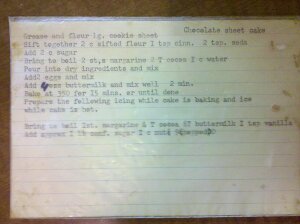 Chocolate sheet cake
Grease and flour lg. cookie sheet
Sift together 2 c sifted flour I tsp cinn. 2 tsp. soda
Add 2 c sugar
Bring to boil 2 st,s margarine 2 T cocoa I c water
Pour into dry ingredients and mix
Add2 eggs and mix
Add buttermilk and mix well 2 min.
Bake at 350 for 15 mins. or until done
Prepare the following icing while cake is baking and ice
while cake is hot.
Bring to boil 1st. margarine & T cocoa buttermilk I tsp vanilla
Add approx I lb conf. sugar I c nuts